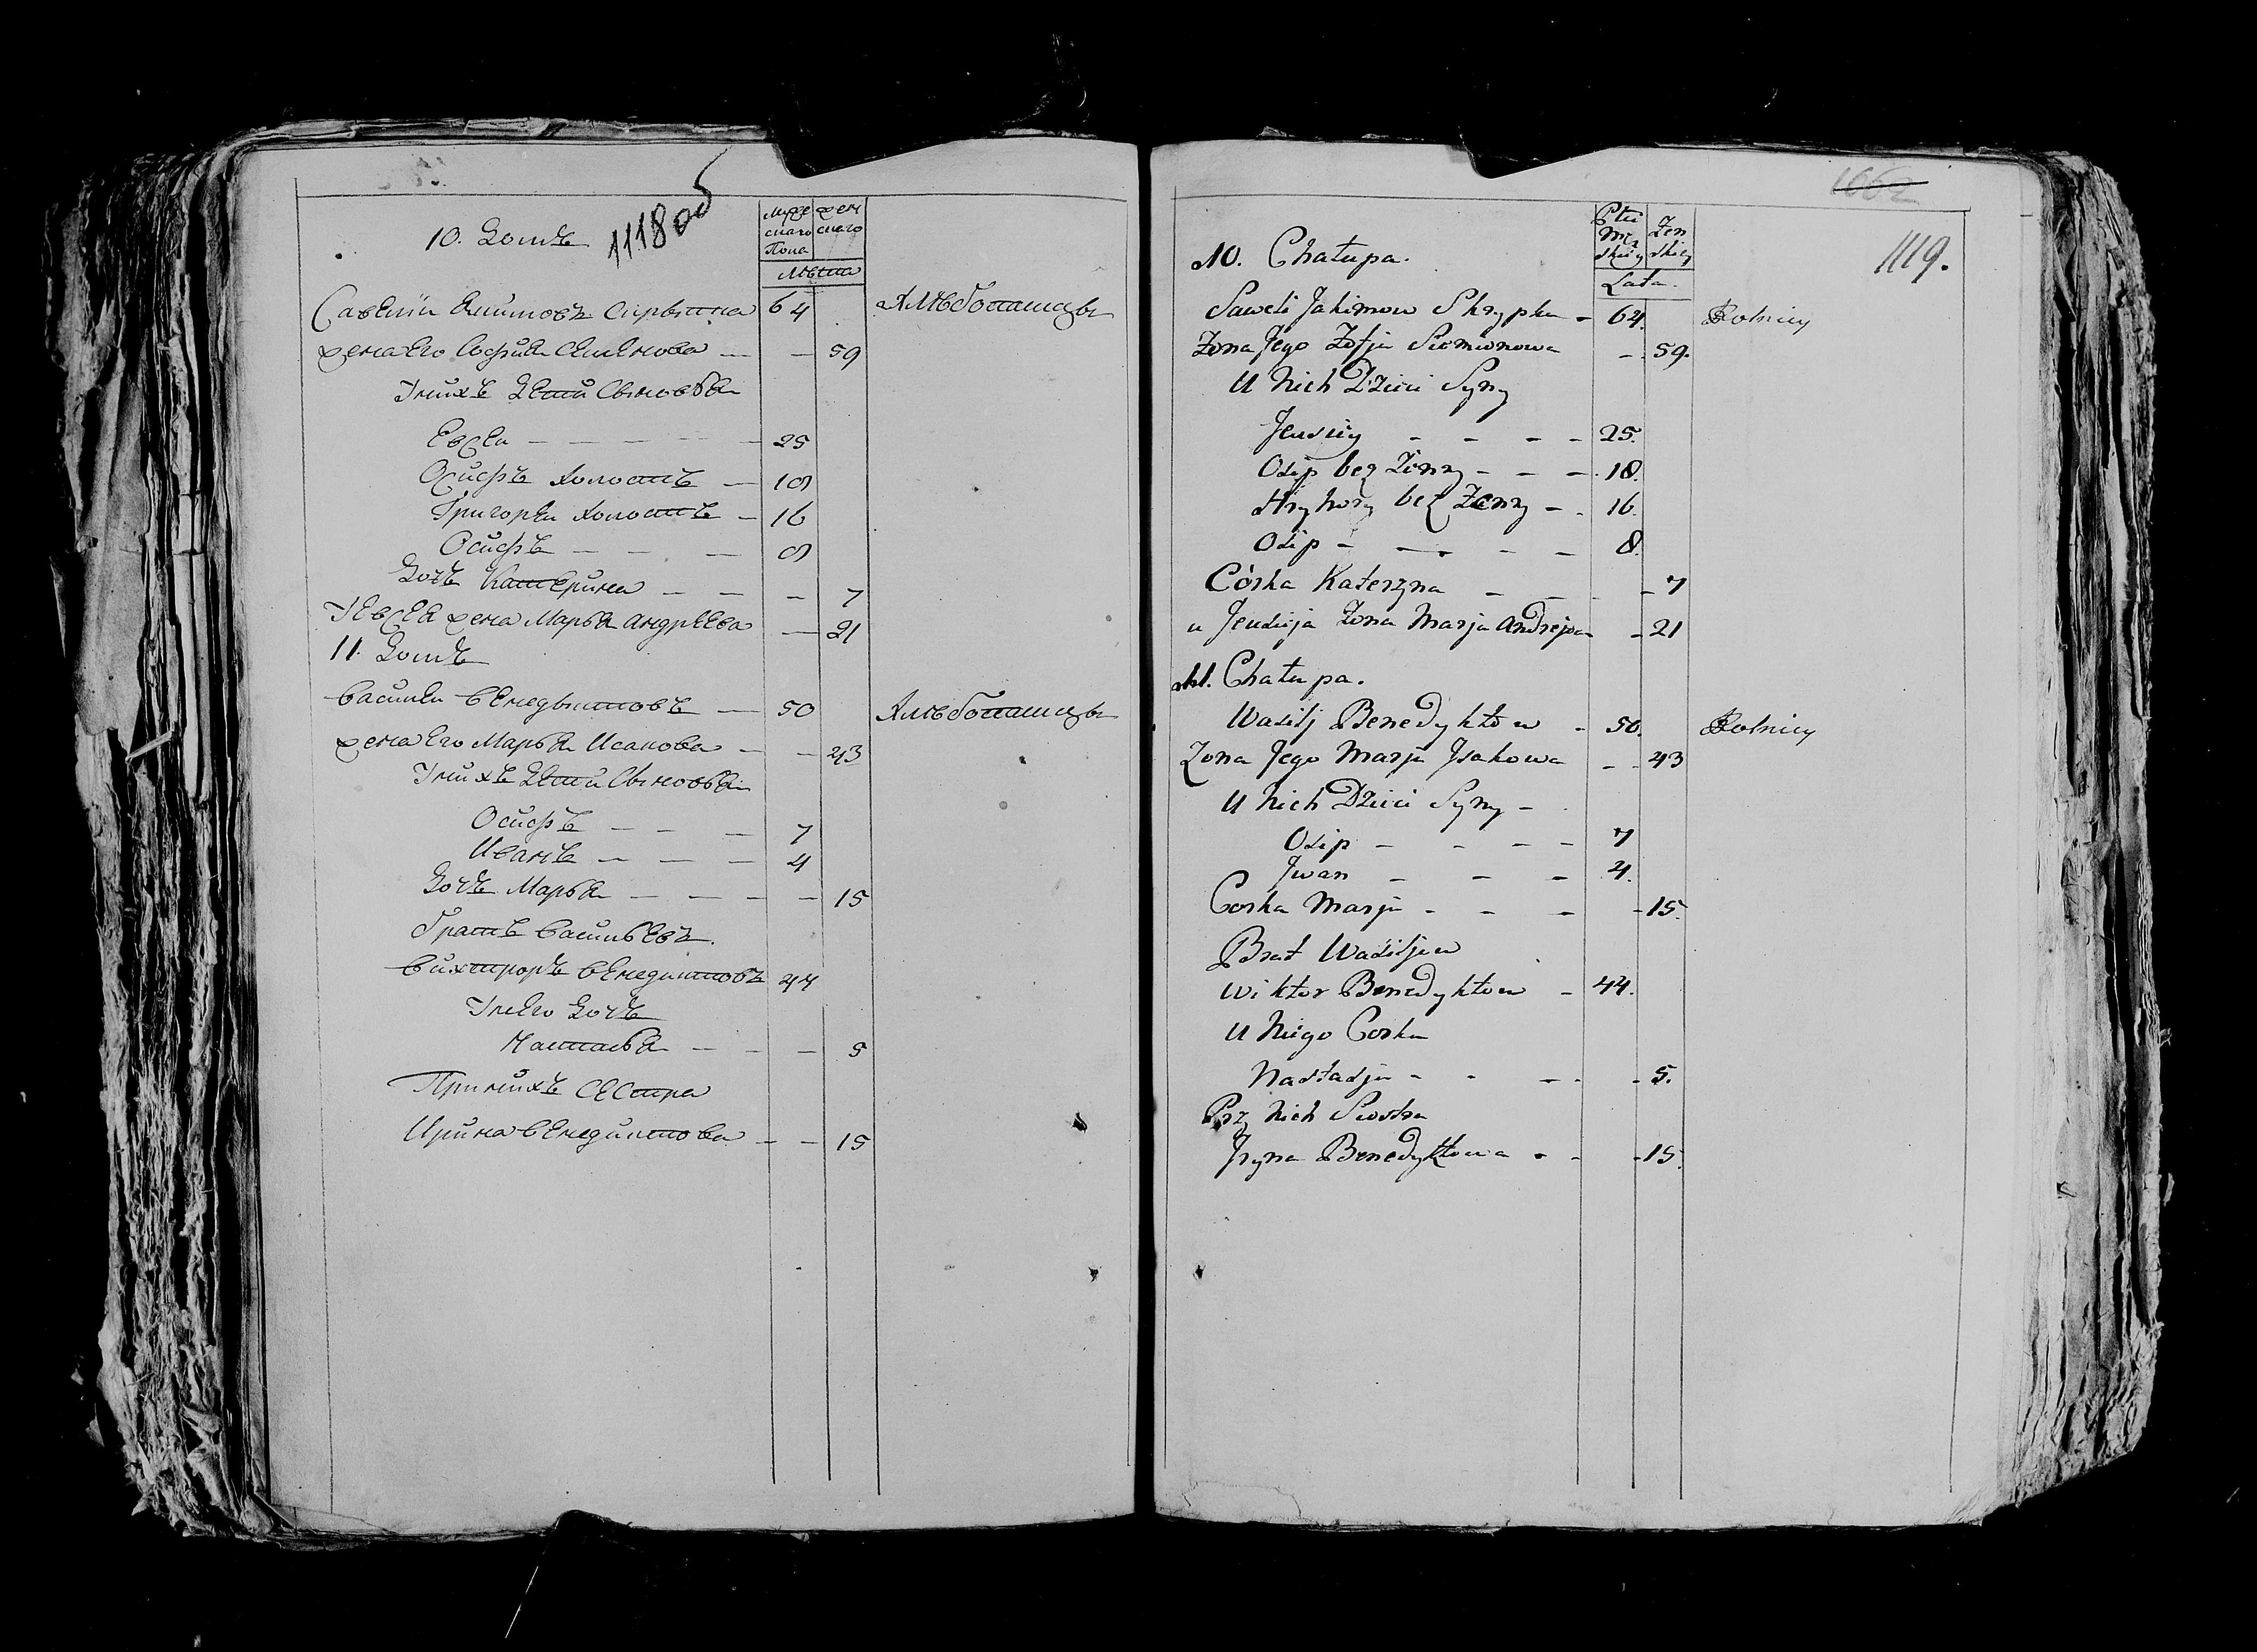 10. Домъ
1118 об
Муже
скаго
Пола
Жен
скаго
Лѣта
Савелiй Якимовъ Скрыпка 64 Хлѣбопашцы
Жена Его Софiя Семенова — — 59
У них Дети Сыновья
Евсей — — — — 25
Осифъ холостъ — 18
Григорей холостъ — 16
Осифъ — — — 8
Дочь Катерина — — — 7
У Евсея жена Марья Андреева — 21
11. Домъ
Василей Бенедыктовъ — 50 Хлѣбопашцы
Жена Его Марья Исакова — — 43
У нихъ Дети Сыновья
Осифъ — — — 7
Иванъ — — — 4
Дочь Марья — — — — 15
Братъ Васильевъ.
Вихторъ Бенедиктовъ 44
У него Дочь
Настасья — — — 5
При нихъ Сестра
Ирина Бенедиктова — — 15
1662
1119.
10. Chałupa.
Płci
Męz
skiey
Zen
skiey
Lata.
Saweli Jakimow Skrypka - 64. Rolnicy
Zona Jego Zofja Siemionowa - - 59.
U Nich Dzieci Syny
Jewsiey - - - - 25.
Osip bez Żony - - - 18.
Hryhory bez Żony - - 16.
Osip - - - - 8.
Córka Katerzyna - - - 7
u Jewsieja Żona Marja Andrejowa - 21
11. Chałupa.
Wasilj Benedyktow - 50. Rolnicy
Zona Jego Marja Isakowa - - 43
U Nich Dzieci Syny -
Osip - - - - 7
Iwan - - - 4.
Corka Marja - - - - 15.
Brat Wasiljow
Wiktor Benedyktow - 44.
U Niego Corka
Nastasja - - - - 5.
Przy Nich Siostra
Iryna Benedyktowa - - - 15.